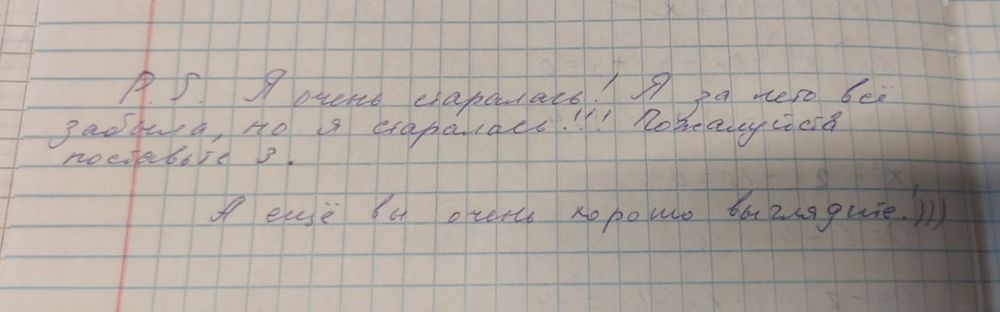 P.S. Я очень старалась! Я за лето всё
забыла, но я старалась!!! Пожалуйста
поставьте 3.
А ещё вы очень хорошо выглядите!)))